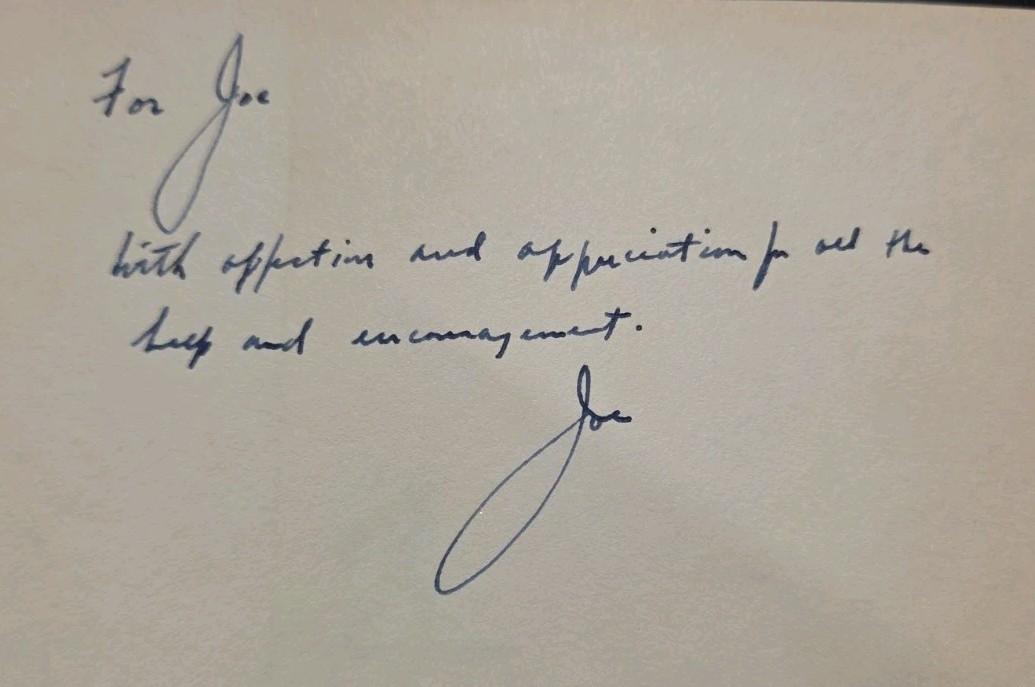 For Joe
With affection and appreciation for all the
help and encouragement.
Joe